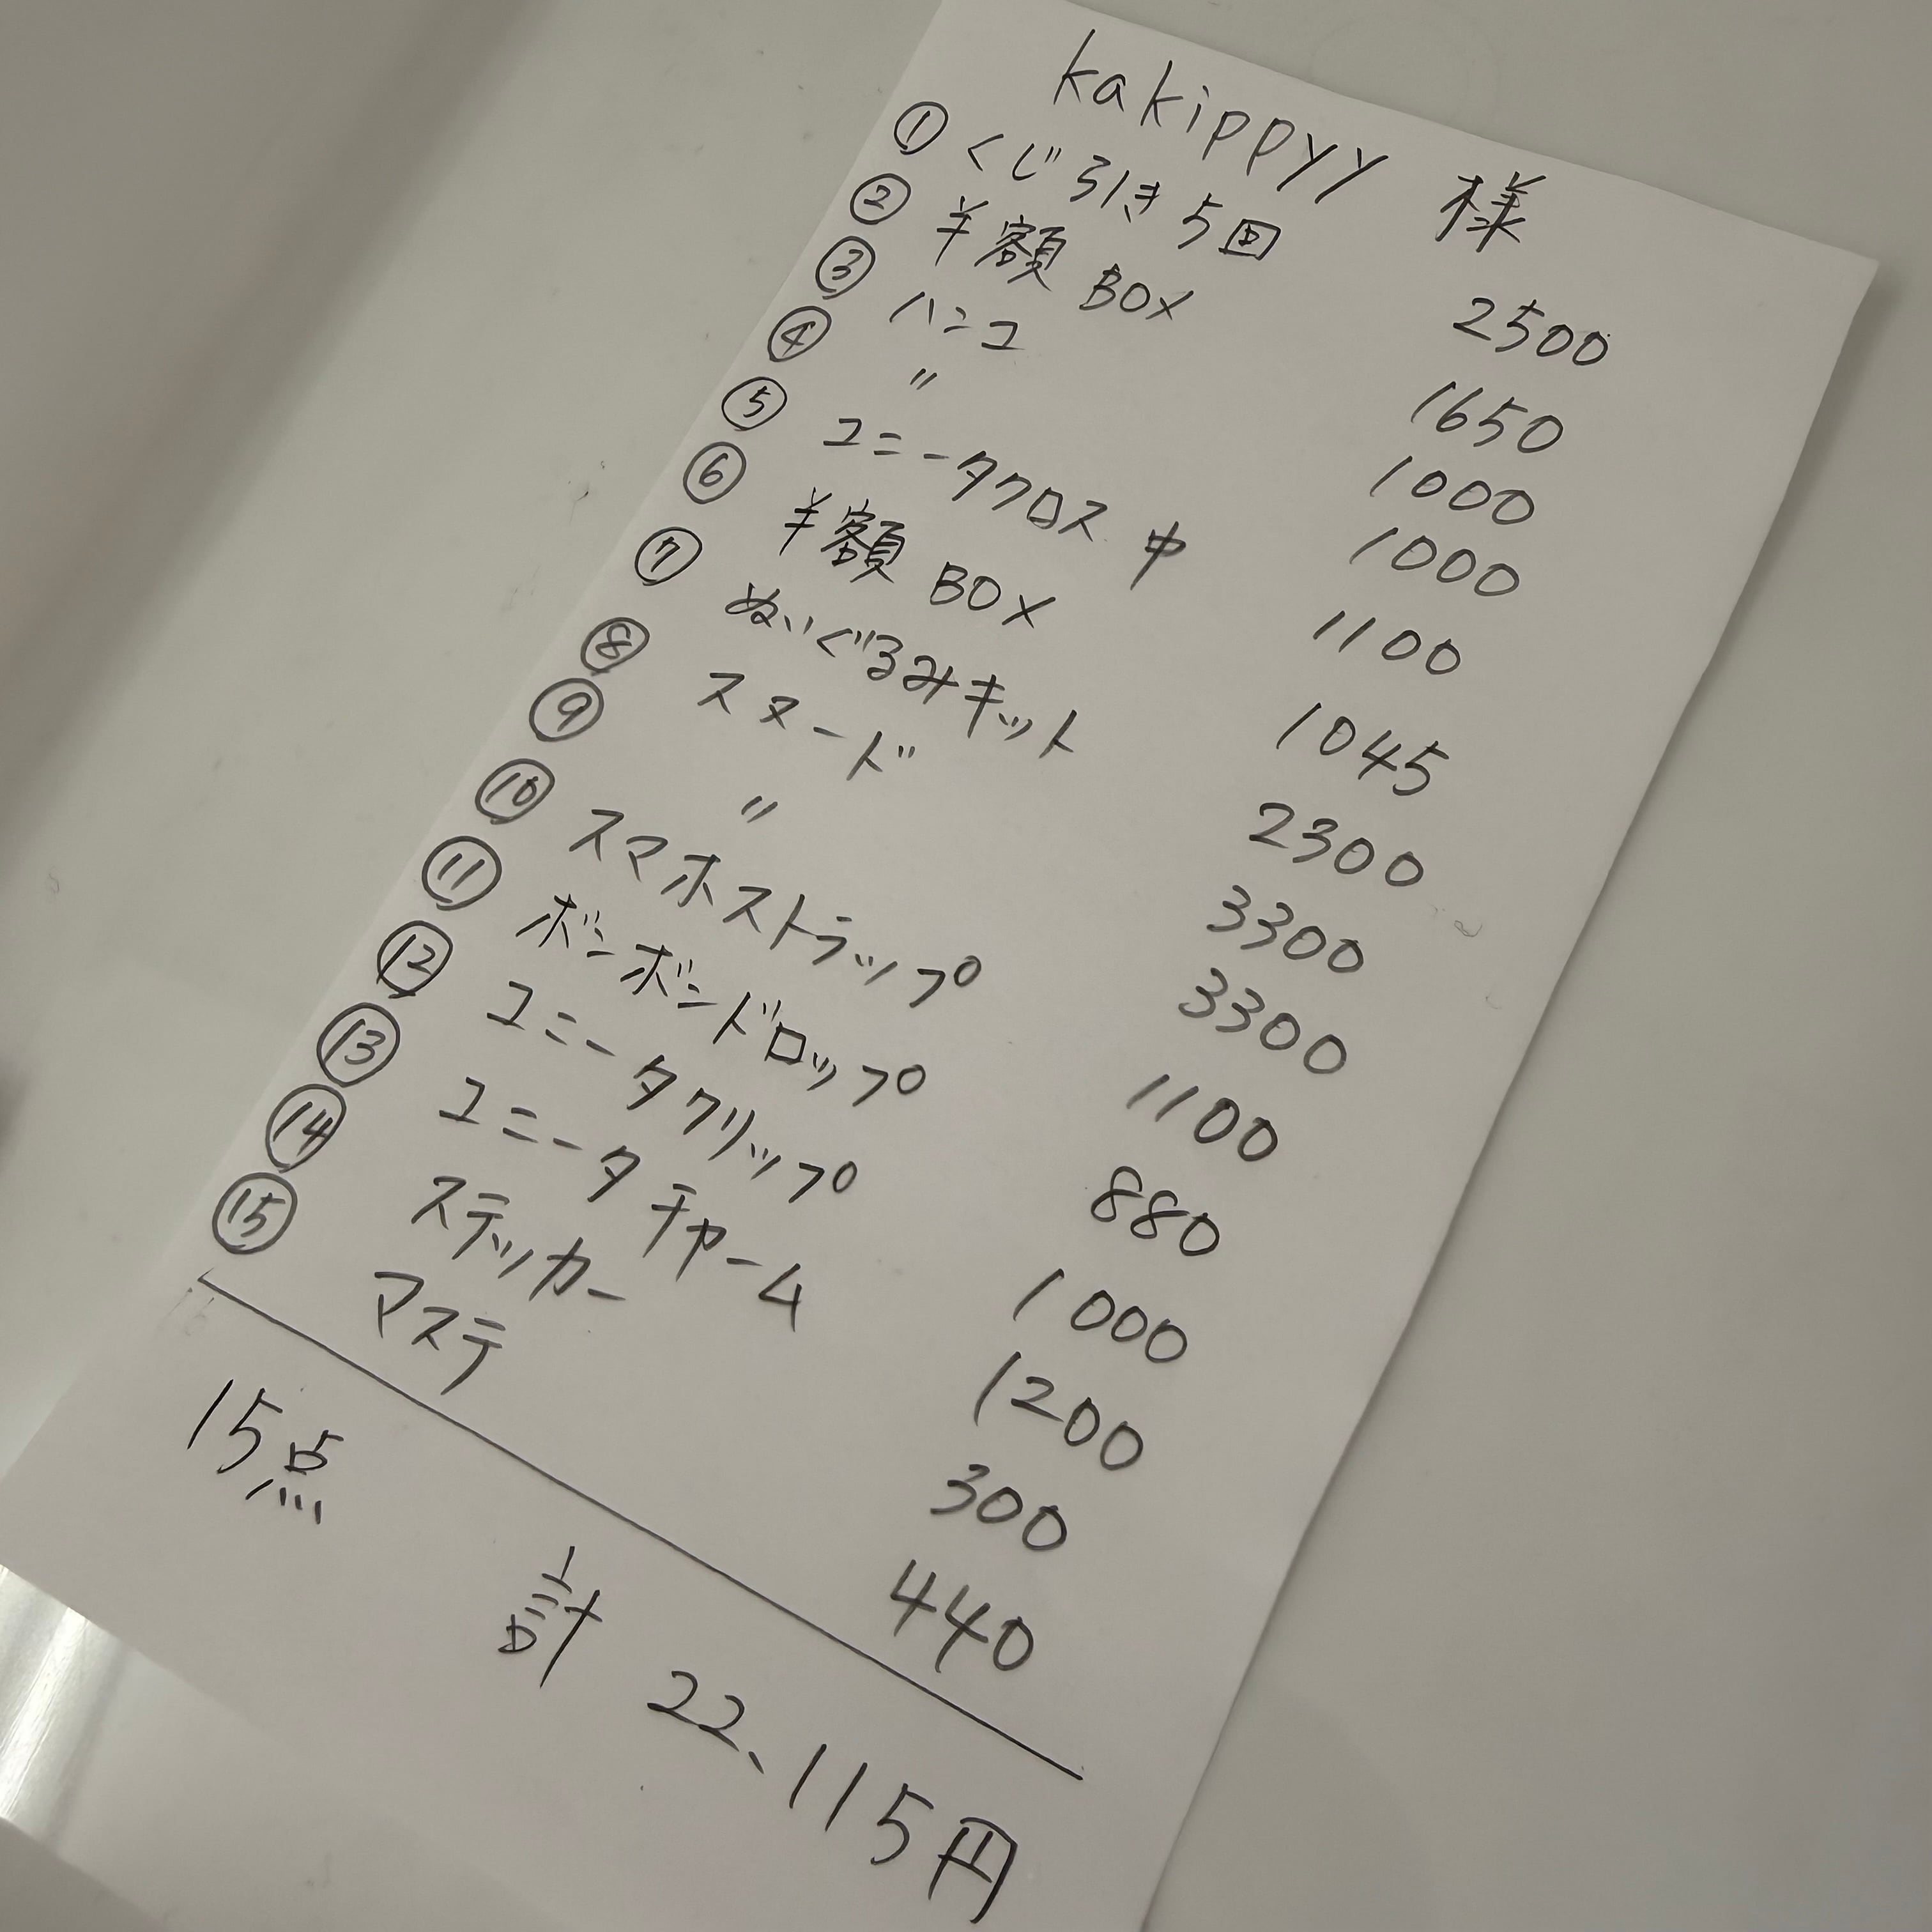 kakippyy 様
① くじ引き5回 2500
② 半額 BOX 1650
③ ハンコ 1000
④ 〃 1000
⑤ ユニータクロス 中 1100
⑥ 半額 BOX 1045
⑦ ぬいぐるみキット 2300
⑧ スヌード 3300
⑨ 〃 3300
⑩ スマホストラップ 1100
⑪ ボンボンドロップ 880
⑫ ユニータクリップ 1000
⑬ ユニータチャーム 1200
⑭ ステッカー 300
⑮ マステ 440
15点
計 22、115円